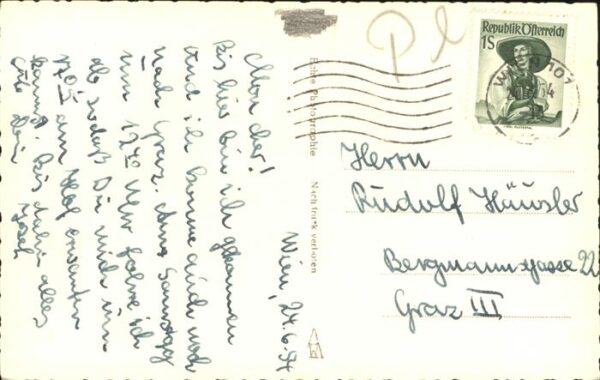 Wien, 24.6.54
Mon cher!
Bis hier bin ich gekommen
und ich komme auch noch
nach Graz. Am Samstag
um 12 40 Uhr fahre ich
ab, sodaß Du mich um
am Hof erwarten
kannst. Bis dahin alles
Gute Dein
Josef
Echte Photographie
Nachdruck verboten
Pl
Republik Österreich
1S
WIEN 101
Herrn
Rudolf Häusler
Bergmanngasse 22
Graz III